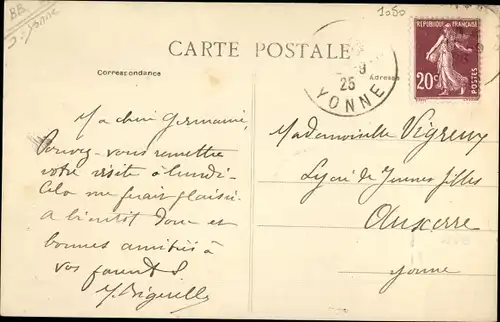 BB
S. Yonne
1050
CARTE POSTALE
RÉPUBLIQUE FRANÇAISE
20c
POSTES
Correspondance
Adresse
9
25
YONNE
Ma chère Germaine,
Pouvez-vous remettre
votre visite à lundi -
Cela me ferait plaisir.
A bientôt donc et
bonnes amitiés à
vos parents
Mademoiselle Vigreux
Lycée de Jeunes filles
Auxerre
Yonne